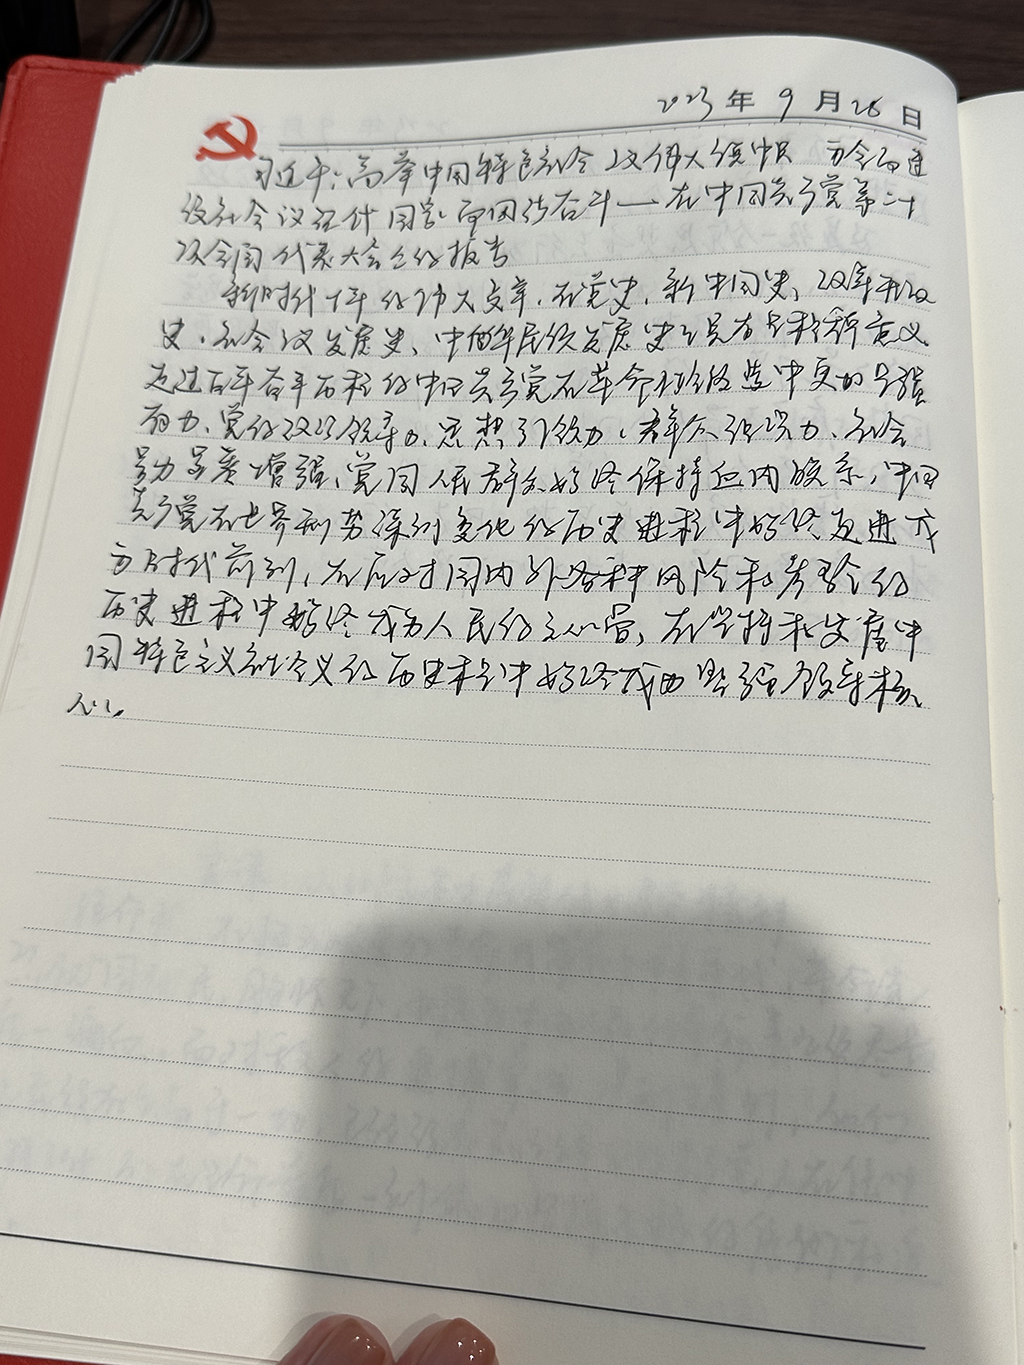 2023年9月26日
习近平:高举中国特色社会主义伟大旗帜 为全面建
设社会主义现代国家而团结奋斗——在中国共产党第二十
次全国代表大会上的报告
新时代十年的伟大变革,在党史、新中国史、改革开放
史、社会主义发展史、中华民族发展史上具有里程碑意义
走过百年奋斗历程的中国共产党在革命性锻造中更加坚强
有力、党的政治领导力、思想引领力、群众组织力、社会
号召力显著增强,党同人民群众始终保持血肉联系,中国
共产党在世界形势深刻变化的历史进程中始终走在
时代前列,在应对国内外各种风险和考验的
历史进程中始终成为人民的主心骨,在坚持和发展中
国特色主义社会主义的历史进程中始终成为坚强领导核
心。